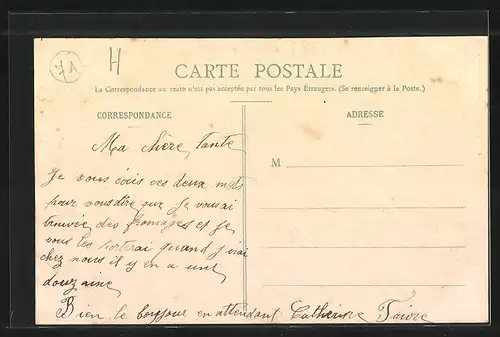 H
CARTE POSTALE
La Correspondance au recto n'est pas acceptée par tous les Pays Étrangers. (Se renseigner à la Poste.)
CORRESPONDANCE
ADRESSE
M
Ma chère, tante
Je vous écris ces deux mots
pour vous dire que je vous ai
trouvée des fromages et je
vous les porterai quand j'irai
chez vous il y en a unt
douzaine
Bien le bonjour en attendant Catherine Faivre